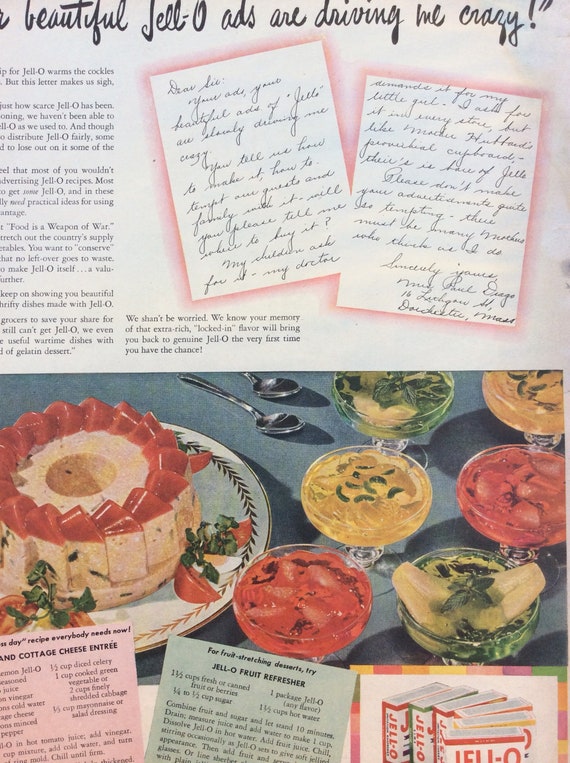 beautiful Jell-O ads are driving me crazy!"
ip for Jell-O warms the cockles
. But this letter makes us sigh,
just how scarce Jell-O has been.
oning, we haven't been able to
ell-O as we used to. And though
o distribute Jell-O fairly, some
d to lose out on it some of the
eel that most of you wouldn't
advertising Jell-O recipes. Most
to get some Jell-O, and in these
lly need practical ideas for using
antage.
t "Food is a Weapon of War."
tretch out the country's supply
etables. You want to "conserve"
that no left-over goes to waste.
o make Jell-O itself . . . a valu-
further.
keep on showing you beautiful
hrifty dishes made with Jell-O.
grocers to save your share for
still can't get Jell-O, we even
e useful wartime dishes with
d of gelatin dessert."
Dear Sir:
Your ads, your
beautiful ads of "Jello"
are slowly driving me
You tell us how
to make it, how to
tempt our guests and
family with it - will
you please tell me
where to buy it?
My children ask
for it - my doctor
demands it for my
little girl - I ask for
it in every store, but
like Mother Hubbard's
proverbial cupboard -
there's is bare of Jello
Please don't make
your advertisements quite
so tempting - there
must be many Mothers
who think as I do
Sincerely yours,
Mrs. Paul
16 St
Dorchester, Mass
We shan't be worried. We know your memory
of that extra-rich, "locked-in" flavor will bring
you back to genuine Jell-O the very first time
you have the chance!
ss day" recipe everybody needs now!
AND COTTAGE CHEESE ENTRÉE
emon Jell-O
seasoned
juice
on vinegar
ons cold water
tage cheese
ons minced
pepper
½ cup diced celery
1 cup cooked green
vegetable or
2 cups finely
shredded cabbage
½ cup mayonnaise or
salad dressing
ll-O in hot tomato juice; add vinegar.
cup mixture, add cold water, and turn
ring mold. Chill until firm.
For fruit-stretching desserts, try
JELL-O FRUIT REFRESHER
1½ cups fresh or canned
fruit or berries
¼ to ½ cup sugar
1 package Jell-O
(any flavor)
1½ cups hot water
Combine fruit and sugar and let stand 10 minutes.
Drain; measure juice and add water to make 1 cup.
Dissolve Jell-O in hot water. Add fruit juice. Chill,
stirring occasionally as Jell-O sets to give soft jellied
appearance. Then add fruit and
glasses. Or line sherbet
with plain
JELL-O
JELL-O
JELL-O